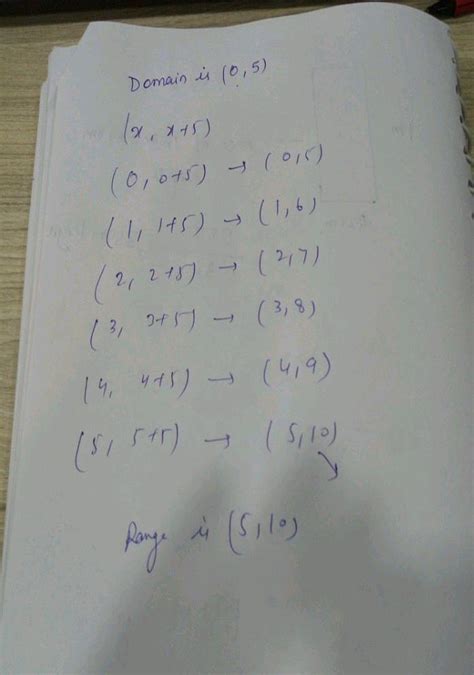 Domain is (0, 5)
(x, x+5)
(0, 0+5) → (0,5)
(1, 1+5) → (1,6)
(2, 2+5) → (2,7)
(3, 3+5) → (3,8)
(4, 4+5) → (4,9)
(5, 5+5) → (5,10)
Range is (5,10)